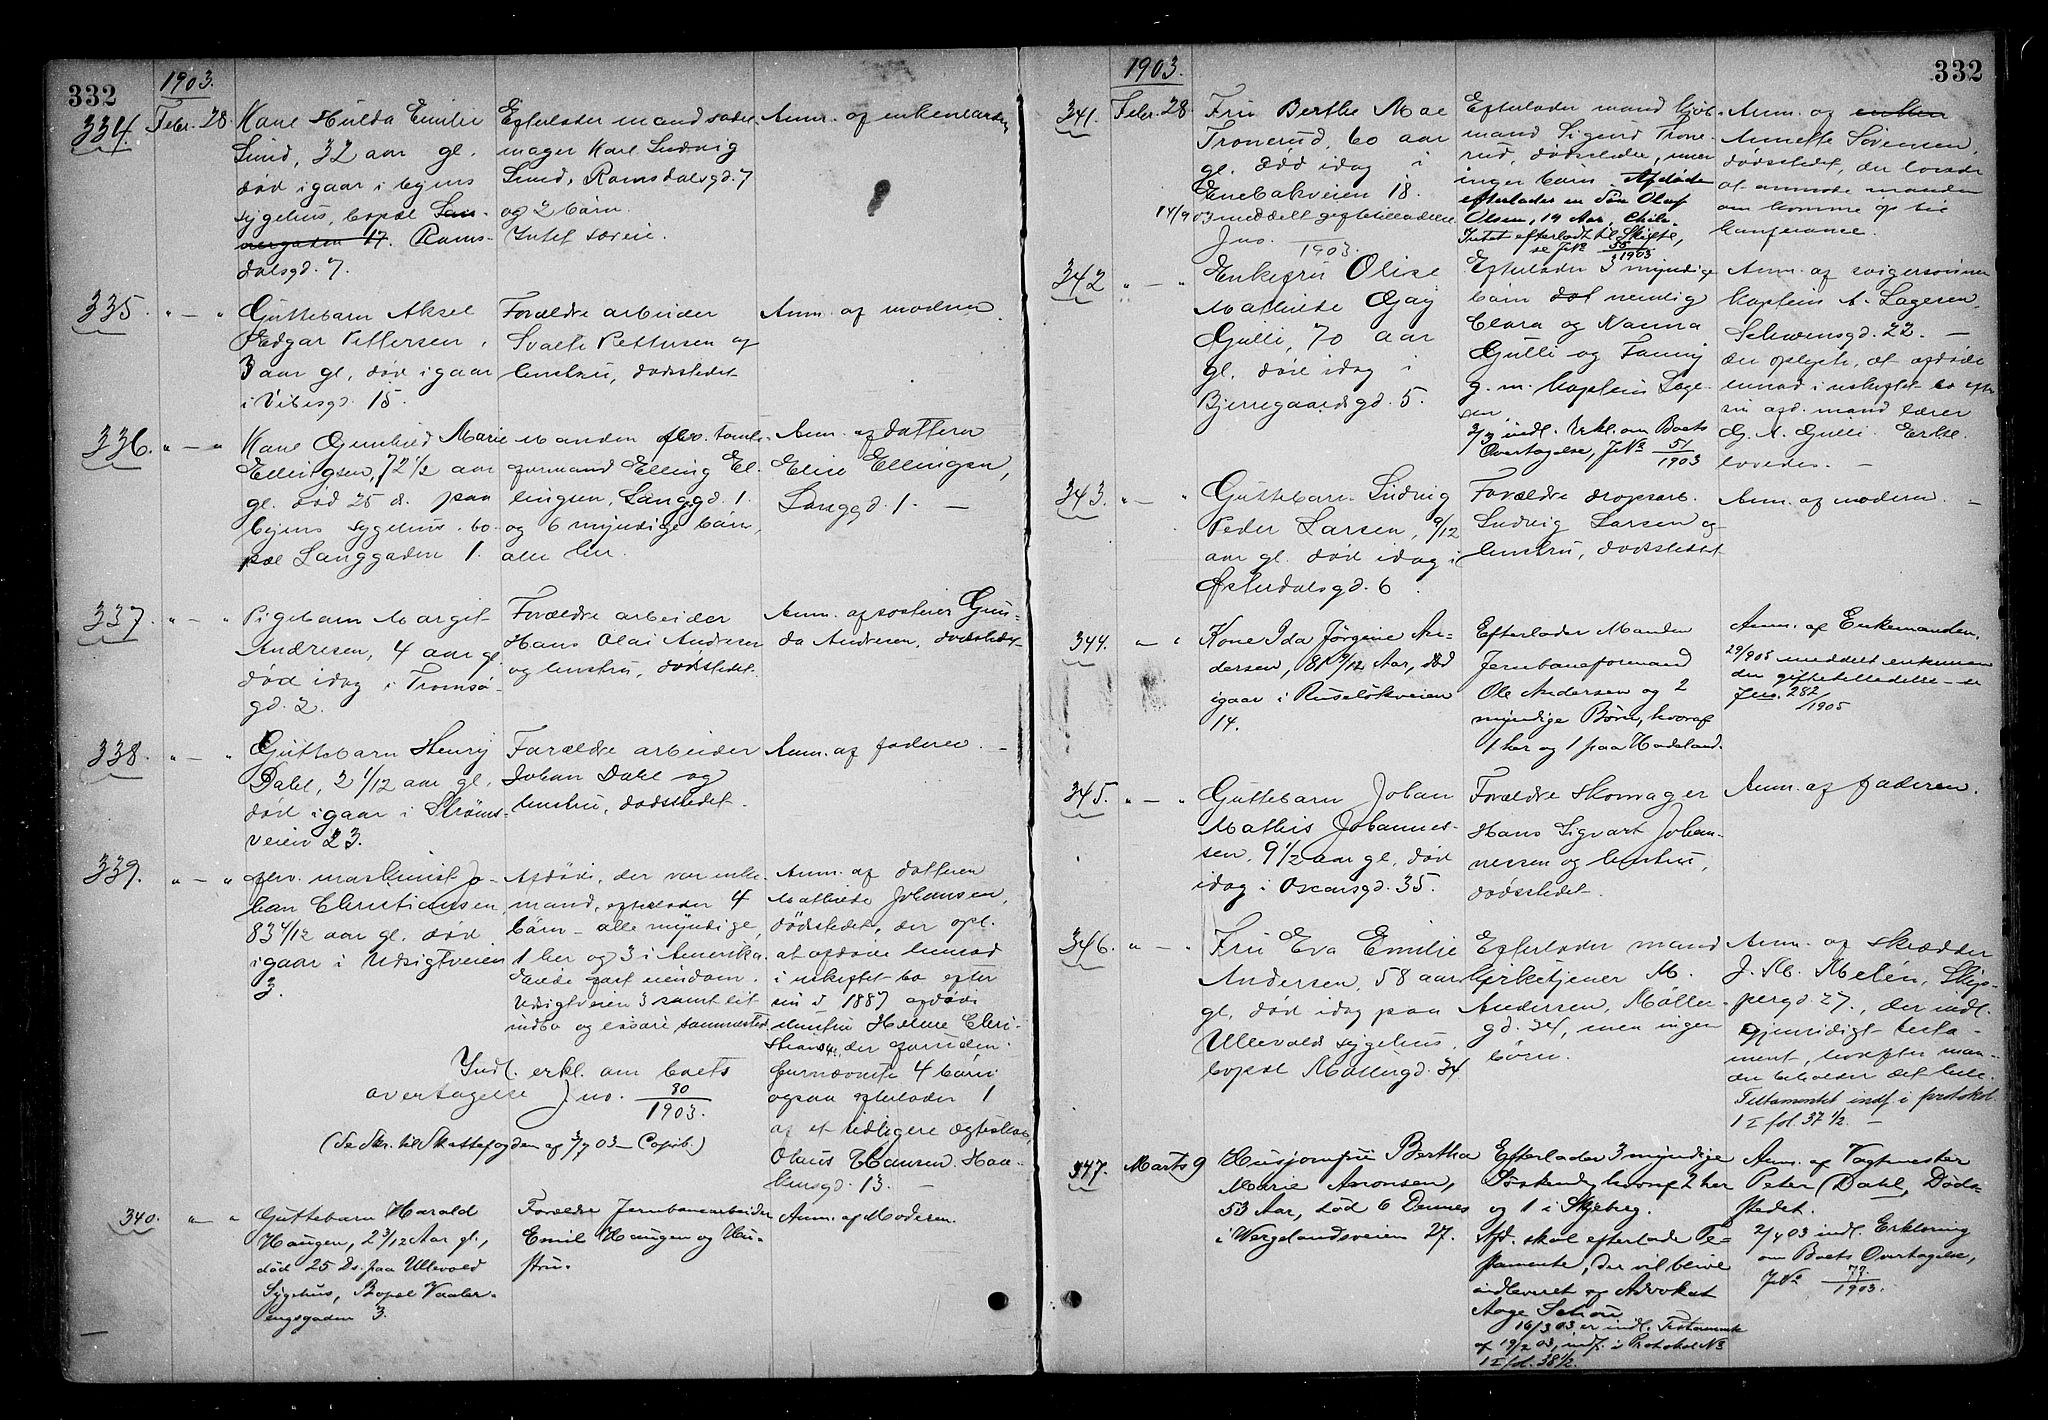 332
1903.
334. Febr. 28. Kone Hulda Emilie
Lund, 32 aar gl.
død igaar i byens
sygehus, bopæl
17. Rams-
dalsgd. 7.
Efterlader mand sadel-
mager Karl Ludvig
Lund, Ramsdalsgd. 7
og 2 børn.
Intet særeie.
Anm. af enkemanden
335. " — " Guttebarn Aksel
Edgar Pettersen,
3 aar gl., død igaar
i Vibesgd. 15.
Forældre arbeider
Pettersen og
hustru, dødsstedet
Anm. af moderen.
336. " — " Kone Gunhild Marie
Ellingsen, 72 1/2 aar
gl. død 25 ds. paa
byens sygehus. bo-
pæl Langgaden 1.
Manden fhv. tomte-
formand Elling El-
lingsen, Langgd. 1.
og 6 myndige børn,
alle her.
Anm. af datteren
Elise Ellingsen,
Langgd. 1. —
337. " — " Pigebarn Margit
Andresen, 4 aar gl.
død idag i Tromsø-
gd. 2.
Forældre arbeider
Hans Olai Andresen
og hustru, dødsstedet.
Anm. af søsteren Gun-
da Andresen, dødsstedet
338. " — " Guttebarn Henry
Dahl, 2 1/12 aar gl.
død igaar i Strøms-
veien 23.
Forældre arbeider
Johan Dahl og
hustru, dødsstedet.
Anm. af faderen. —
339. " — " fhv. maskinist Jo-
han Christiansen,
83 4/12 aar gl. død
igaar i Udsigtveien
3.
Afdøde, der var enke-
mand, efterlader 4
børn - alle myndige,
1 her og 3 i Amerika.
Havde fast eiendom.
Udsigtveien 3 samt lit
indbo og effter sammested
Indl. erkl. om boets
overtagelse Jno. 80/1903.
(Se Skr. til Skattefogden af 3/7 03 - Copib.)
Anm. af datteren
Mathilde Johansen,
dødstedet, der opl.
at afdøde hensad
i uskiftet bo efter
sin i 1887 afdøde
hustru Helene Chri-
stians., der foruden
fornævnte 4 børn
ogsaa efterlader 1
af et tidligere ægteskab,
Olaus Hansen. Haa-
kensgd. 13. —
340. " — " Guttebarn Harald
Haugen, 2 3/12 Aar gl.,
død 25 Ds. paa Ullevold
Sygehus, Bopæl Vaaler-
engsgaden 3.
Forældre Jernbanearbeider
Emil Haugen og Hu-
stru.
Anm. af Moderen.
332
1903.
341. Febr. 28. Fru Berthe Mae
Tronerud, 60 aar
gl. død idag i
Enebakveien 18.
14/9 03 meddelt giftetilladelse
Jno. /1903.
Efterlader mand kjøb-
mand Sigurd Trone-
rud, dødsstedet, men
ingen børn. Afdøde
efterlader en Søn Olaf
Olsen, 19 Aar, Chile.
Intet efterladt til Skifte,
se JNo 55/1903
Anm. af enken
Annette Sørensen,
dødsstedet, der lovede
at anmode manden
om komme op til
konferance.
342 " — " Enkefru Olise
Mathilde Gjøy
Gulli, 70 aar
gl. død idag i
Bjerregaardsgd. 5.
Efterlader 3 myndige
børn nemlig
Clara og Nanna
Gulli og Fanny
g. m. kaptein Lage-
sen.
2/3 indl. Erkl. om Boets
Overtagelse, JNo 51/1903
Anm. af svigersønnen
kaptein A. Lagesen
Schwensgd. 22. —
der oplyste, at afdøde
hensad i uskiftet bo efter
sin afd. mand lærer
G. A. Gulli. Erkl.
lovedes. —
343. " — " Guttebarn Ludvig
Peder Larsen, 9/12
aar gl. død idag i
Østerdalsgd. 6.
Forældre dropsarb.
Ludvig Larsen og
hustru, dødsstedet
Anm. af moderen. —
344. " — " Kone Ida Jørgine An-
dersen, 81 9/12 Aar, død
igaar i Ruseløkveien
14.
Efterlader Manden
Jernbaneformand
Ole Andersen og 2
myndige Børn, hvoraf
1 her og 1 paa Hadeland.
Anm. af Enkemanden.
29/905 meddelt enkeman-
den giftetilladelse - se
Jno. 282/1905
345. " — " Guttebarn Johan
Mathis Johannes-
sen, 9 1/2 aar gl., død
idag i Oscarsgd. 35.
Forældre Skomager
Hans Sigvart Johan-
nessen og hustru,
dødsstedet.
Anm. af faderen.
346. " — " Fru Eva Emilie
Andersen, 58 aar
gl., død idag paa
Ullevolds sygehus,
bopæl Møllergd. 34.
Efterlader mand
kirketjener M.
Andersen, Møller-
gd. 34, men ingen
børn.
Anm. af skrædder
J. M. Melén, Skip-
pergd 27., der indl.
gjensidigt testa-
ment, hvorefter man-
den beholder det hele.
Testamentet indf. i protokol
1 I fol. 37 1/2. —
347. Marts 9 Husjomfru Bertha
Marie Aronsen,
53 Aar, død 6 Dennes
i Wergelandsveien 27.
Efterlader 3 myndige
Søskende, hvoraf 2 her
og 1 i Skjeberg.
Afd. skal efterlade Te-
stamente, der vil blive
indleveret af Advokat
Aage Schou
16/3 03 er indl. Testamente
af 19/2 03, indf. i Protokol No
1 I fol. 38 1/2.
Anm. af Vagtmester
Peter Dahl, Døds-
stedet.
2/4 03 indl. Erklæring
om Boets Overtagelse,
JNo 77/1903.